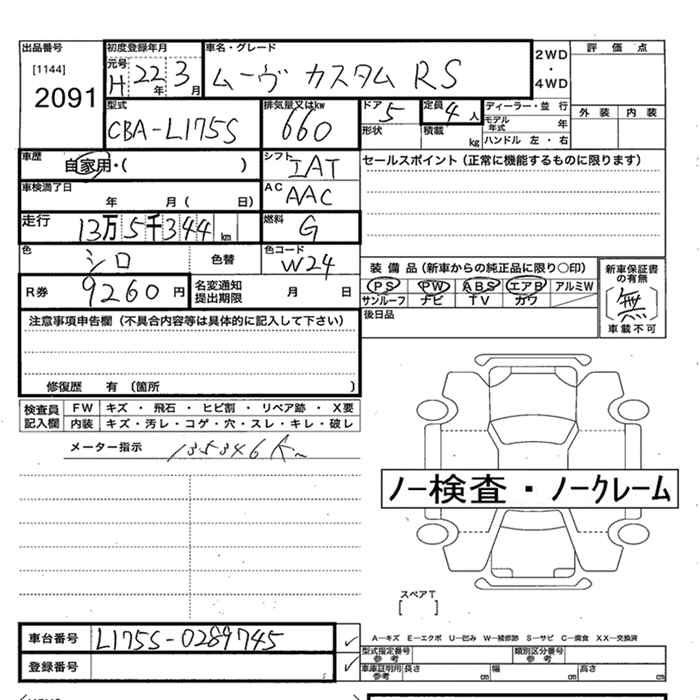 出品番号 初度登録年月 車名・グレード 2WD 評価点
[1144] 元号 H 22年 3月 ムーヴ カスタム RS ・
2091 4WD
型式 排気量又はkw ドア 5 定員 4人 ディーラー・並行 外装 内装
CBA-L175S 660 形状 積載 kg モデル年式 年
ハンドル 左・右
車歴 自家用・( ) シフト IAT セールスポイント(正常に機能するものに限ります)
車検満了日 年 月( 日) AC AAC
走行 13万5千344km 燃料 G
色 シロ 色替 色コード W24
装備品(新車からの純正品に限り○印) 新車保証書の有無
R券 9260円 名変通知提出期限 月 日 PS PW ABS エアB アルミW 無
サンルーフ ナビ TV カワ 車載不可
注意事項申告欄(不具合内容等は具体的に記入して下さい) 後日品
修復歴 有(箇所 )
検査員記入欄 FW キズ・飛石・ヒビ割・リペア跡・X要
内装 キズ・汚レ・コゲ・穴・スレ・キレ・破レ
メーター指示 135346K
ノー検査・ノークレーム
スペアT
[ ]
車台番号 L175S-0289745 A―キズ E―エクボ U―凹み W―補修跡 S―サビ C―腐食 XX―交換済
型式指定番号参考 類別区分番号参考
登録番号 車庫証明用参考 長さ cm 幅 cm 高さ cm